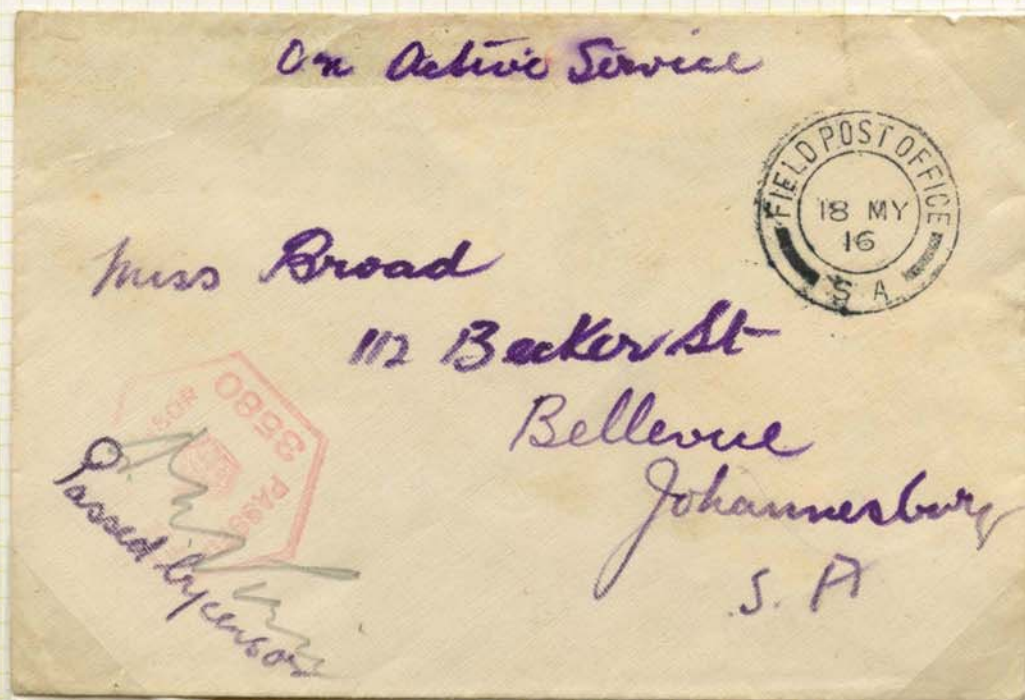 On Active Service
FIELD POST OFFICE
18 MY
16
S A
Miss Broad
112 Becker St
Bellevue
Johannesburg
S. A
3580
PASS
SOR
Passed by censor